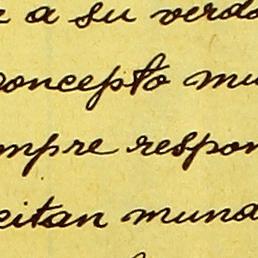 a su verda
concepto mu
mpre respon
citan mund